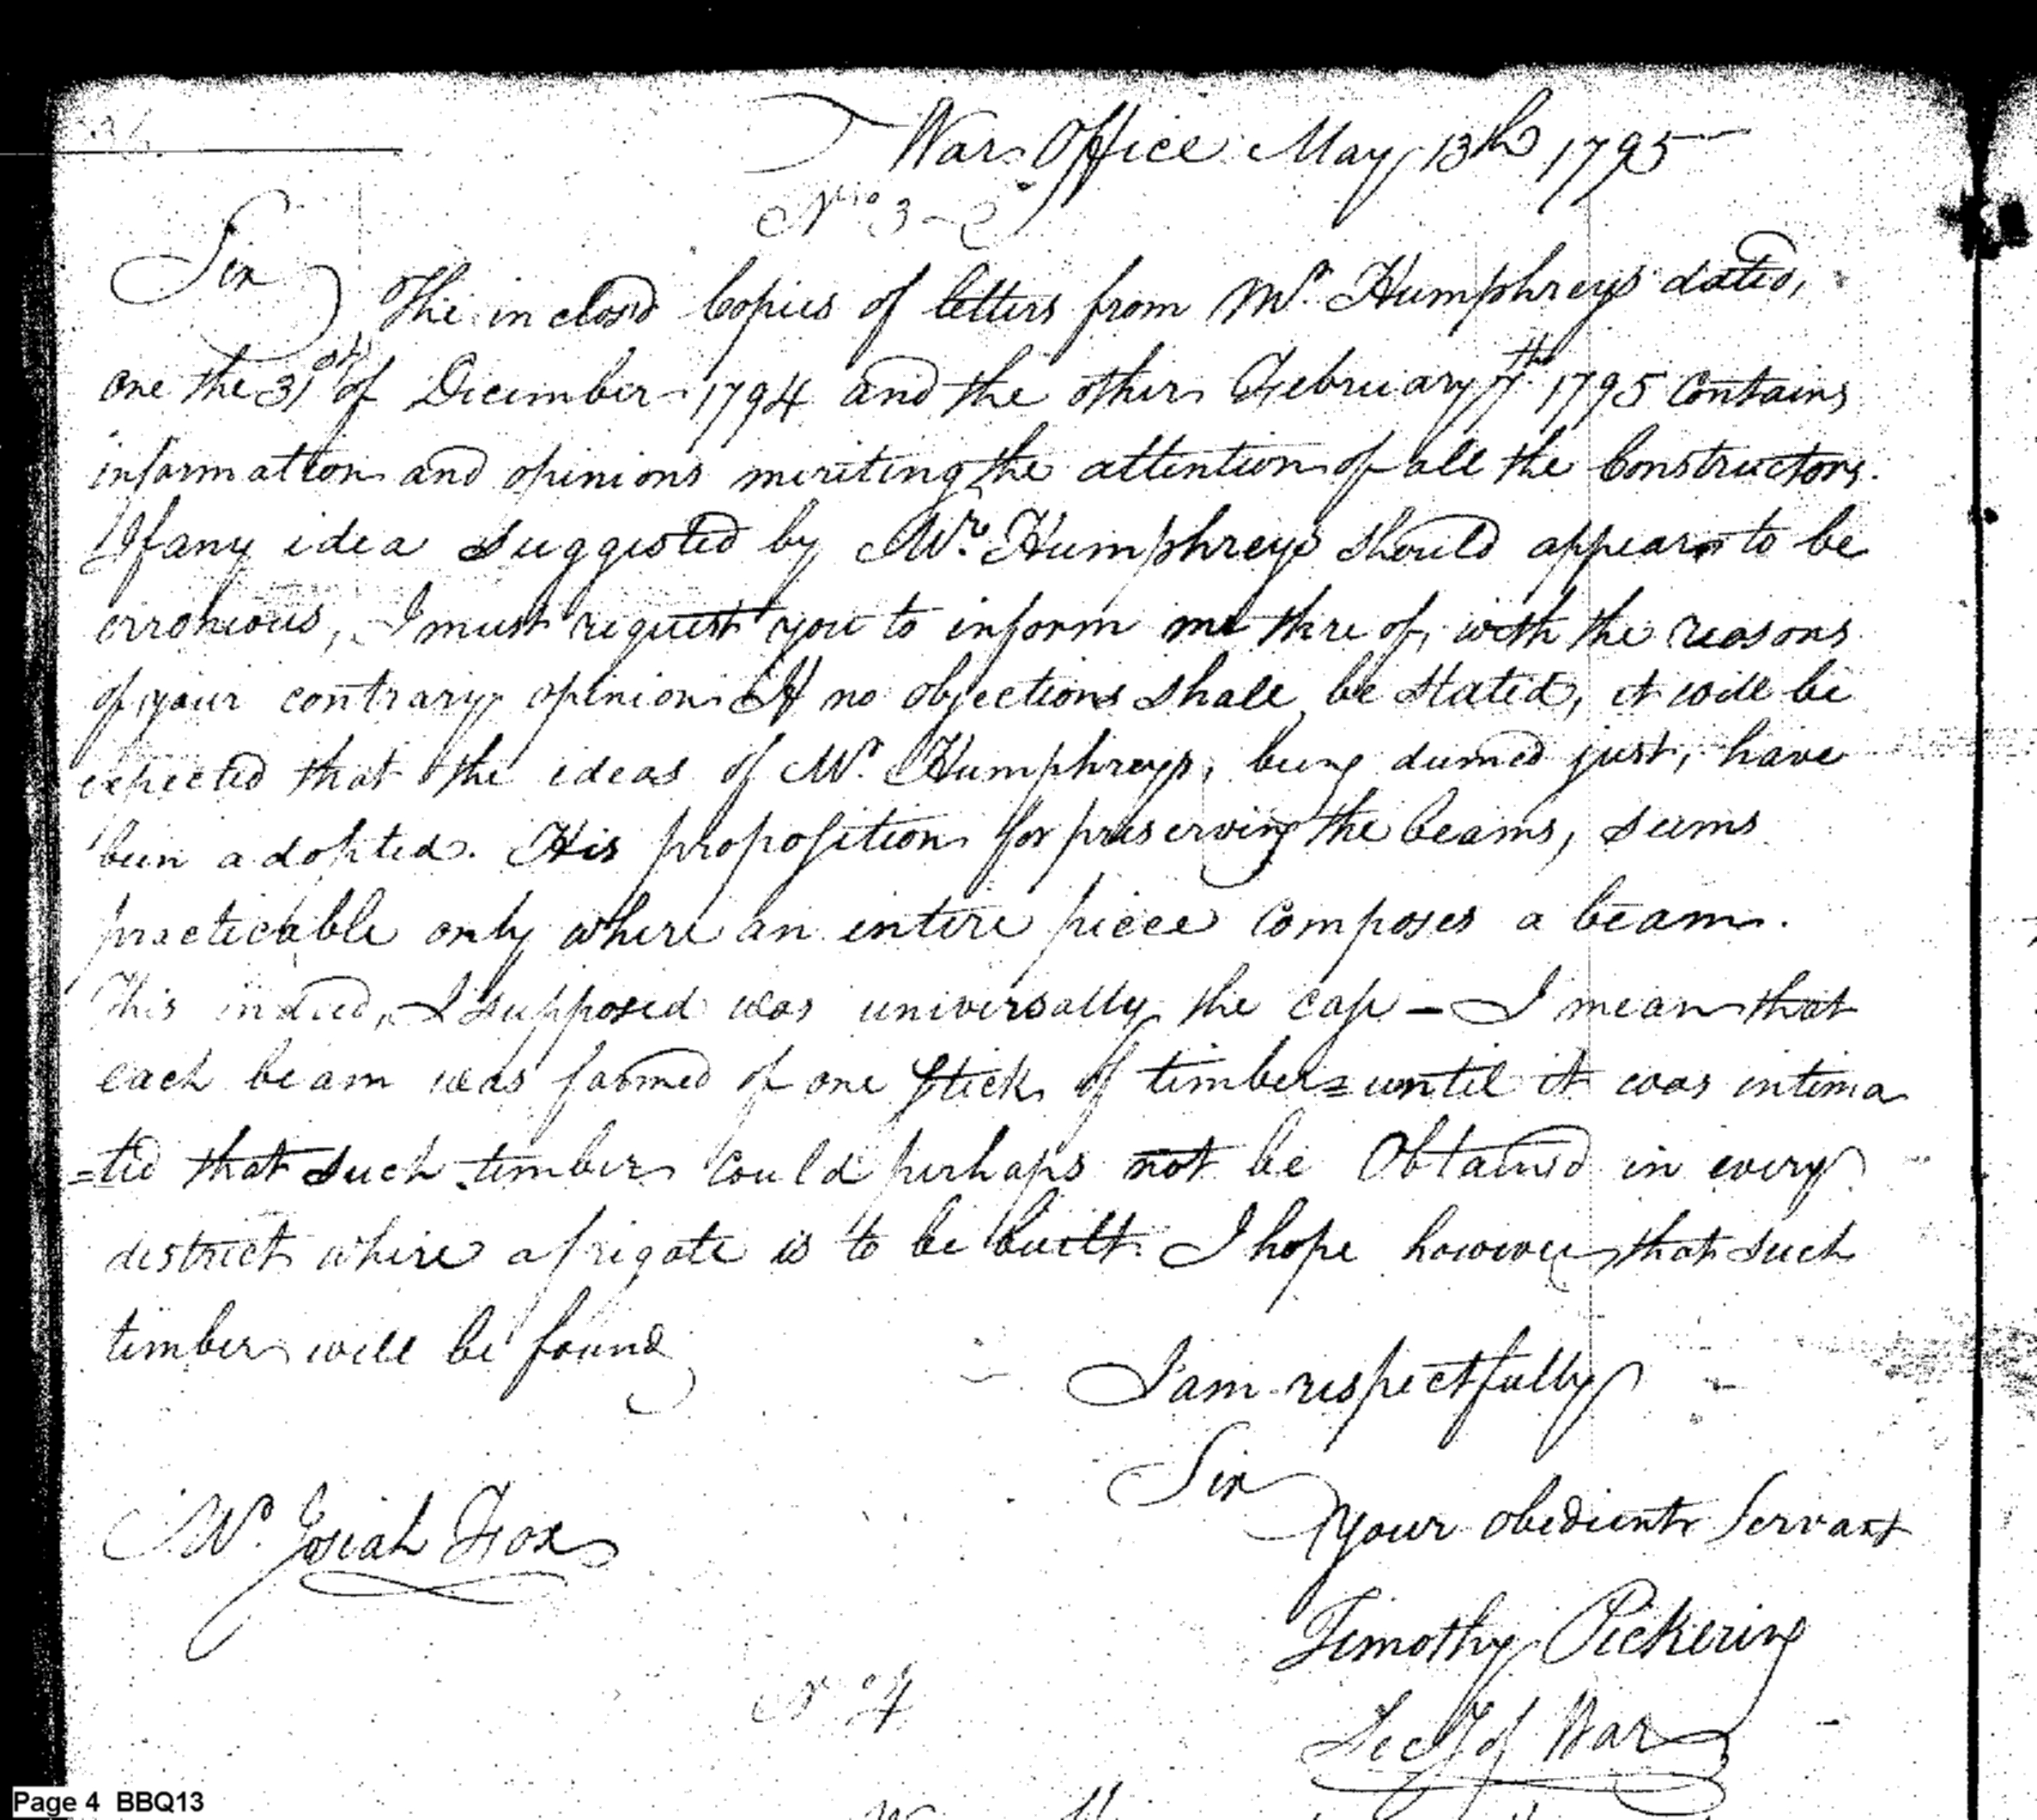 War Office May 13th 1795
No 3
Sir
The inclosed Copies of letters from Mr. Humphreys dated,
one the 31st of December 1794 and the other February 7th 1795 contains
information and opinions meriting the attention of all the Constructors.
If any idea suggested by Mr. Humphreys should appear to be
erronious, I must request you to inform me there of, with the reasons
of your contrary opinion. If no objections shall be stated, it will be
expected that the ideas of Mr. Humphreys, being deemed just, have
been adopted. His proposition for preserving the beams, seems
practicable only where an entire piece composes a beam.
This indeed, I supposed was universally the case - I mean that
each beam was formed of one stick of timber = until it was intima
=ted that such timber could perhaps not be Obtained in every
district where a frigate is to be built. I hope however that such
timber will be found
I am respectfully
Sir
your obedient Servant
Mr. Josiah Fox
Timothy Pickering
Secy of War
No 4
Page 4 BBQ13